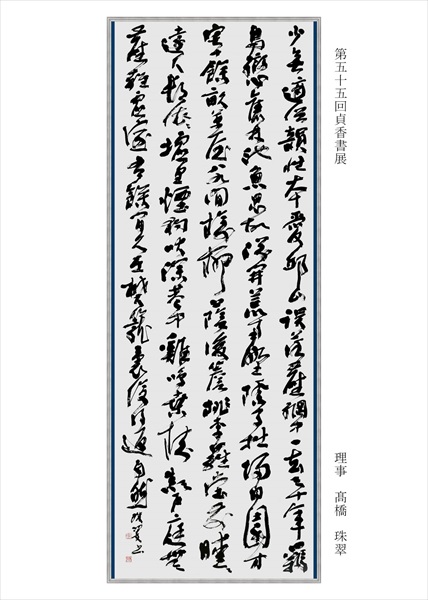 第五十五回貞香書展
理事 髙橋 珠翠
少無適俗韻性本愛邱山誤落塵網中一去三十年羈
鳥戀舊林池魚思故淵開荒南野際守拙歸園田方
宅十餘畝草屋八九間榆柳蔭後簷桃李羅堂前曖々
遠人村依々墟里煙狗吠深巷中雞鳴桑樹顛戶庭無
塵雜虛室有餘閒久在樊籠裏復得返自然